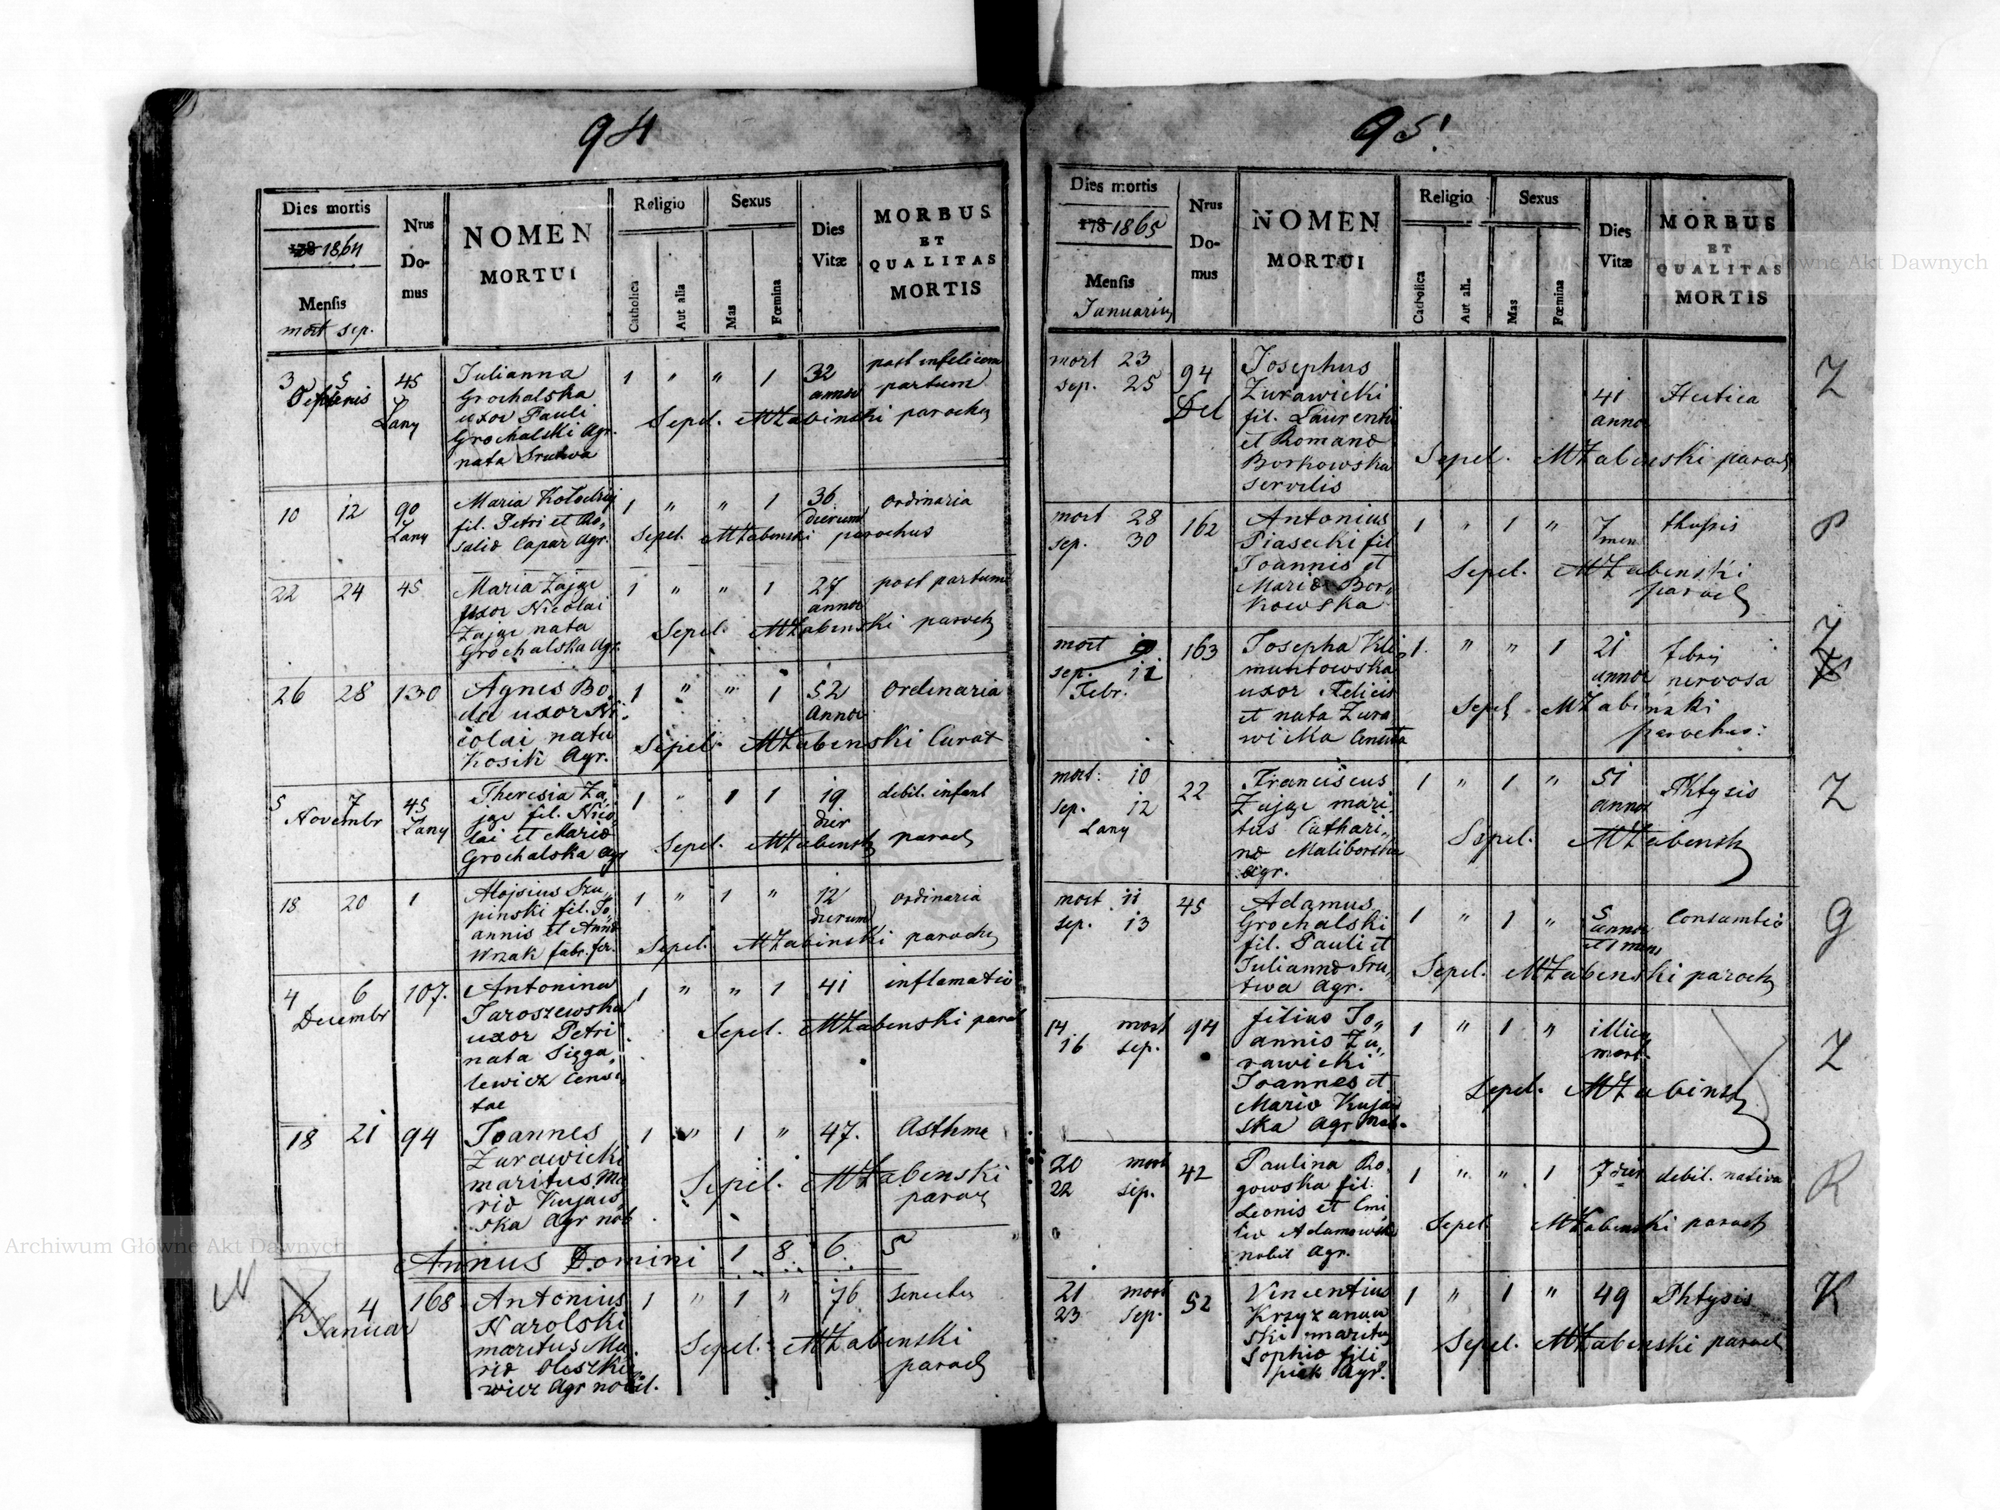 94
Dies mortis
178 1864
Mensis
mort sep.
Nrus
Do-
mus
NOMEN
MORTUI
Religio
Catholica
Aut alia
Sexus
Mas
Fœmina
Dies
Vitæ
MORBUS
ET
QUALITAS
MORTIS
3 5
45
Lany
Julianna
Grochalska
uxor Pauli
Grochalski Agr.
nata Srutwa
1 " " 1
32
annor
post infelicem
partum
Sepel. MŻabinski parochus
10 12
90
Lany
fil. Petri et Ro„
salio Capar Agr.
1 " " 1
36
dierum
ordinaria
Sepel. MŻabinski parochus
22 24
45
Maria Zajge
uxor Nicolai
Zajge nata
Grochalska Agr.
1 " " 1
27
annor
post partum
Sepel. MŻabinski paroch
26 28
130
Agnes Bo„
uxor Ni„
colai nata
Kosik Agr.
1 " " 1
52
Annor
ordinaria
Sepel. MŻabenski Curat
5 7
Novembr
45
Lany
Theresia Za„
jge fil. Nico„
lai et Mario
Grochalska Agr
1 " 1 1
19
dier
debil. infant
Sepel. MŻabensk paroch
18 20
1
Alojsius Szu„
pinski fil. Jo„
annis et Anno
Wrzak fabr. fer.
1 " 1 "
12
dierum
ordinaria
Sepel. MŻabinski parochus
4 6
Decembr
107.
Antonina
Jaroszewska
uxor Petri
nata Sigga„
lewicz Censi„
tae
1 " " 1
41
inflamatio
Sepel. MŻabenski paroch
18 21
94
Joannes
Zurawicki
maritus Ma
rio Kujaw
ska Agr nob
1 " 1 "
47.
Asthme
Sepel. MŻabenski
paroch
Annus Domini 1 8 6. 5
N
4
Januar
168
Antonius
Narolski
maritus Ma„
rio Oleszkie„
wicz Agr nobil.
1 " 1 "
76
Senectus
Sepel. MŻabenski
paroch
95!
Dies mortis
178 1865
Mensis
Januarius
Nrus
Do-
mus
NOMEN
MORTUI
Religio
Catholica
Aut ali.
Sexus
Mas
Fœmina
Dies
Vitæ
MORBUS
ET
QUALITAS
MORTIS
mort 23
sep. 25
94
Josephus
Zurawicki
fil. Laurenti
et Romano
Borkowska
servilis
41
annor
Hectica
Sepel. MŻabenski paroch
Z
mort 28
sep. 30
162
Antonius
Piasecki fil
Joannis et
Mario Bor„
kowska
1 " 1 "
7
men
thussis
Sepel. MŻabinski
paroch
P
mort
sep. 11
Febr.
163
Josepha Kli„
muntowska
uxor Felicis
et nata Zura
wicka
1 " " 1
21
annor
febris
nervosa
Sepel MŻabinski
parochus.
Z
mort: 10
sep. 12
Lany
22
Franciscus
Zajge mari„
tus Cathari„
no Maliborska
Agr.
1 " 1 "
51
annor
Phtysis
Sepel. MŻabensk
Z
mort. 11
sep. 13
45
Adamus
Grochalski
fil. Pauli et
Julianno Sru„
twa Agr.
1 " 1 "
5
annor
et 1 mens
Consumtio
Sepel. MŻabenski paroch
G
14 mort
16 sep.
94
filius Jo„
annis Zu„
rawicki
Joannes et
Mario Kujaw
ska Agr nob.
1 " 1 "
illico
mort.
Sepel. MŻabinsk
Z
20 mort
22 sep.
42
Paulina Ro„
gowska fil.
Leonis et Emi
lio Adamowska
nobil Agr.
1 " " 1
7 dier
debil. nativa
Sepel. MŻabenski paroch
R
21 mort
23 sep.
52
Vincentius
Krzyzanow
ski maritus
Sophio fili
piak Agr.
1 " 1 "
49
Phtysis
Sepel. MŻabenski paroch
K
Archiwum Główne Akt Dawnych
Archiwum Główne Akt Dawnych